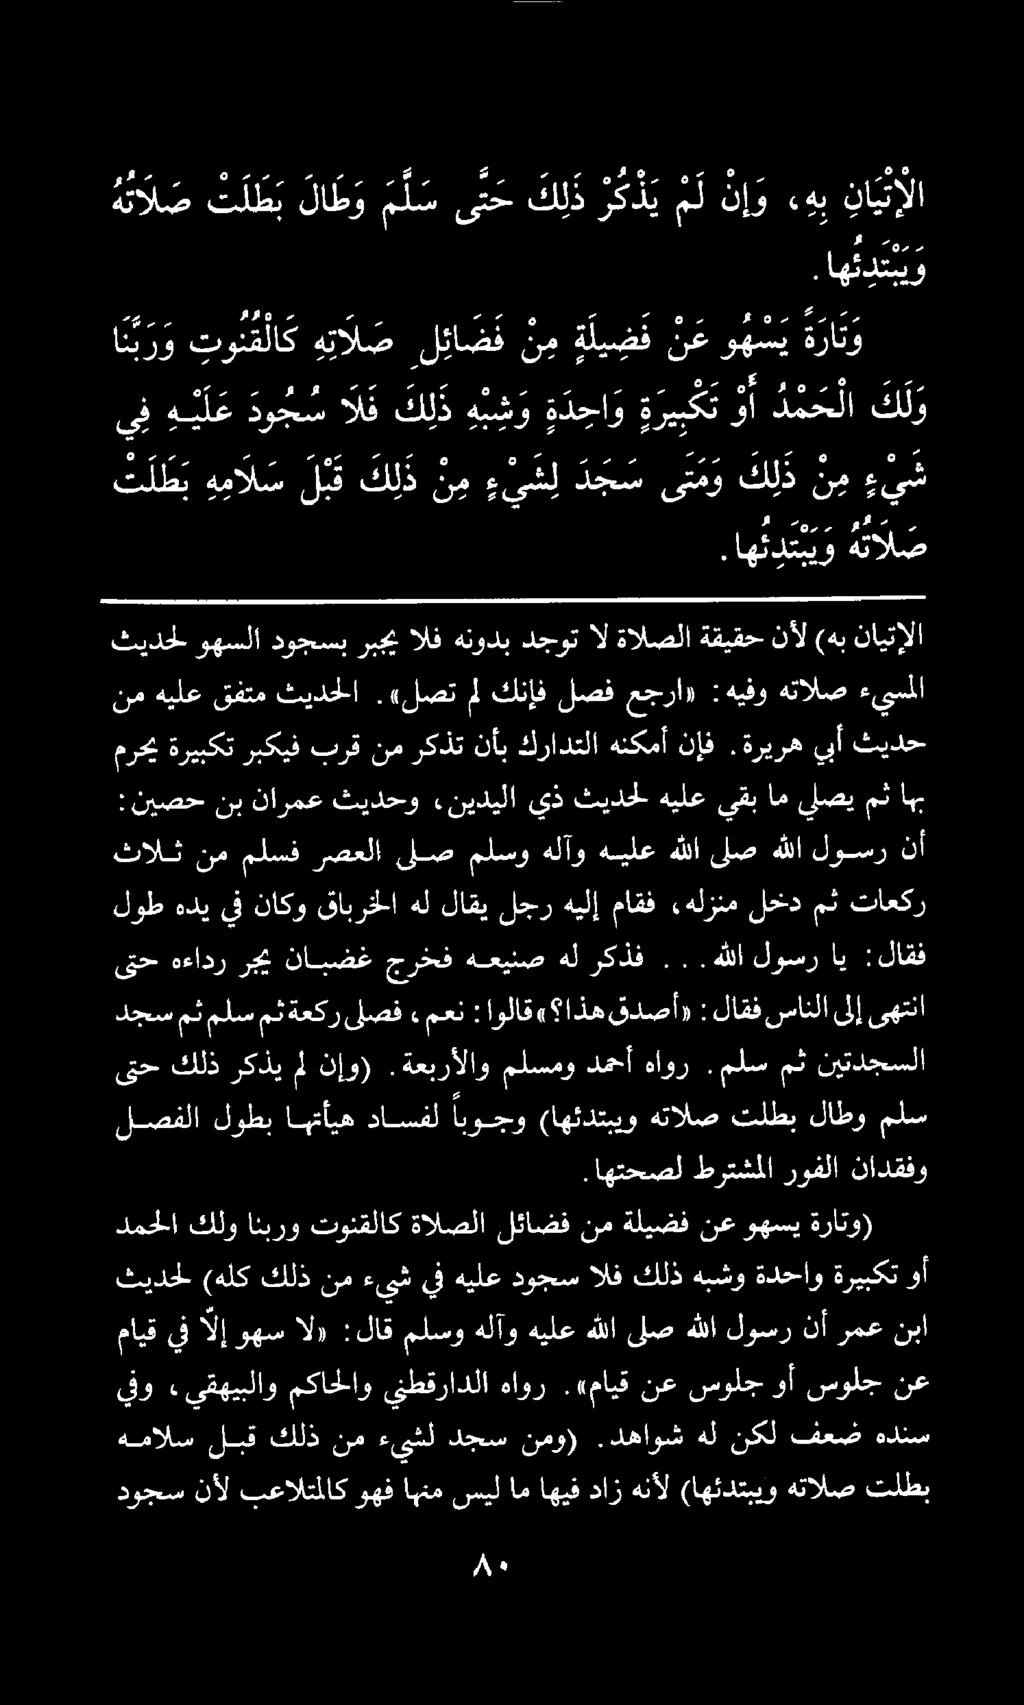 الْإِتْيَانِ بِهِ ، وَإِنْ لَمْ يَذْكُرْ ذَلِكَ حَتَّى سَلَّمَ وَطَالَ بَطَلَتْ صَلَاتُهُ
وَيَبْتَدِئُها .
وَتَارَةً يَسْهُو عَنْ فَضِيلَةٍ مِنْ فَضَائِلِ صَلَاتِهِ كَالْقُنُوتِ وَرَبَّنَا
وَلَكَ الْحَمْدُ أَوْ تَكْبِيرَةٍ وَاحِدَةٍ وَشِبْهِ ذَلِكَ فَلَا سُجُودَ عَلَيْهِ فِي
شَيْءٍ مِنْ ذَلِكَ وَمَتَى سَجَدَ لِشَيْءٍ مِنْ ذَلِكَ قَبْلَ سَلَامِهِ بَطَلَتْ
صَلَاتُهُ وَيَبْتَدِئُها .
الإتيان به) لأن حقيقة الصلاة لا توجد بدونه فلا يجبر بسجود السهو لحديث
المسيء صلاته وفيه : «ارجع فصل فإنك لم تصل» . الحديث متفق عليه من
حديث أبي هريرة . فإن أمكنه التدارك بأن تذكر من قرب فيكبر تكبيرة يحرم
بها ثم يصلي ما بقي عليه لحديث ذي اليدين ، وحديث عمران بن حصين :
أن رسول الله صلى الله عليه وآله وسلم صلى العصر فسلم من ثلاث
ركعات ثم دخل منزله ، فقام إليه رجل يقال له الخرباق وكان في يده طول
فقال : يا رسول الله . . . فذكر له صنيعه فخرج غضبان يجر رداءه حتى
انتهى إلى الناس فقال : «أصدق هذا؟» قالوا : نعم ، فصلى ركعة ثم سلم ثم سجد
السجدتين ثم سلم . رواه أحمد ومسلم والأربعة . (وإن لم يذكر ذلك حتى
سلم وطال بطلت صلاته ويبتدئها) وجوباً لفساد هيأتها بطول الفصل
وفقدان الفور المشترط لصحتها .
(وتارة يسهو عن فضيلة من فضائل الصلاة كالقنوت وربنا ولك الحمد
أو تكبيرة واحدة وشبه ذلك فلا سجود عليه في شيء من ذلك كله) لحديث
ابن عمر أن رسول الله صلى الله عليه وآله وسلم قال : «لا سهو إلاّ في قيام
عن جلوس أو جلوس عن قيام» . رواه الدارقطني والحاكم والبيهقي ، وفي
سنده ضعف لكن له شواهد . (ومن سجد لشيء من ذلك قبل سلامه
بطلت صلاته ويبتدئها) لأنه زاد فيها ما ليس منها فهو كالمتلاعب لأن سجود
٨٠